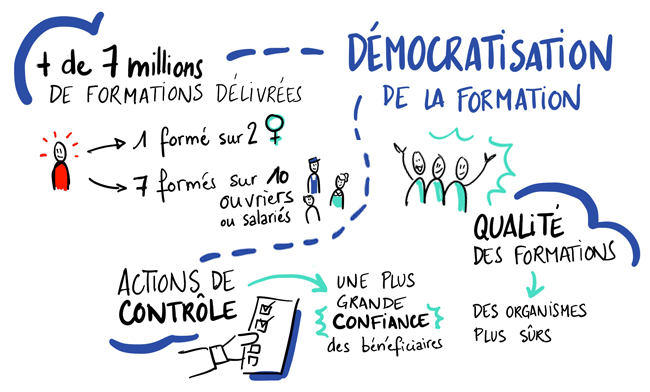 + de 7 millions
DE FORMATIONS DÉLIVRÉES
1 formé sur 2 ♀
7 formés sur 10
ouvriers
ou salariés
DÉMOCRATISATION
DE LA FORMATION
QUALITÉ
DES FORMATIONS
DES ORGANISMES
PLUS SÛRS
ACTIONS DE
CONTRÔLE
UNE PLUS
GRANDE
CONFIANCE
des bénéficiaires